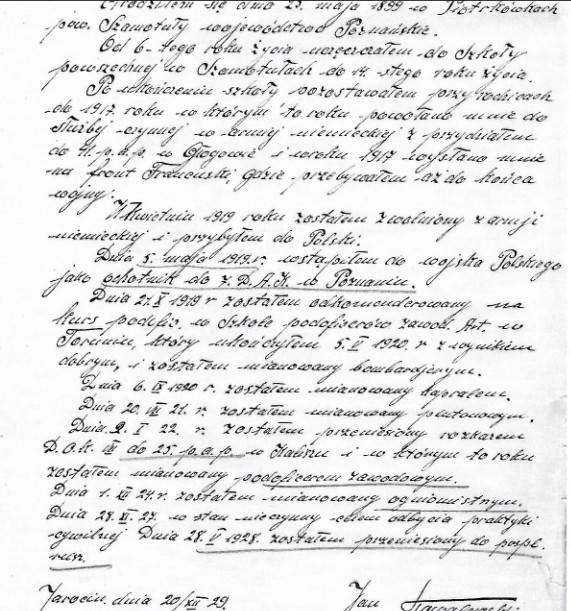 Urodziłem się dnia 23. maja 1899 w Piotrkówkach
pow. Szamotuły województwo Poznańskie.
Od 6-tego roku życia uczęszczałem do Szkoły
powszechnej w Szamotułach do 14. stego roku życia.
Po ukończeniu szkoły pozostawałem przy rodzicach
do 1917. roku w którym to roku powołano mnie do
służby czynnej w armji niemieckiej z przydziałem
do 41. p.a.p. w Głogowie i w roku 1917 wysłano mnie
na front Francuski, gdzie przebywałem aż do końca
wojny.
W kwietniu 1919 roku zostałem zwolniony z armji
niemieckiej i przybyłem do Polski.
Dnia 5. maja 1919. r. wstąpiłem do wojska Polskiego
jako ochotnik do 7. D.A.K. w Poznaniu.
Dnia 21. X 1919 r zostałem odkomenderowany na
kurs podofic. w Szkole podoficerów zawod. Art. w
Toruniu, który ukończyłem 5. II 1920. r z wynikiem
dobrym, i zostałem mianowany bombardjerym.
Dnia 6. IV 1920 r. zostałem mianowany kapralem.
Dnia 20. VII 21. r. zostałem mianowany plutonowym.
Dnia 2. I 22. r. zostałem przeniesiony rozkazem
D.O.K. VII do 25. p.a.p. w Kaliszu i w którym to roku
zostałem mianowany podoficerem zawodowym.
Dnia 1. XII 24. r. zostałem mianowany ogniomistrzym.
Dnia 28. XI. 27. w stan nieczynny celem odbycia praktyki
cywilnej Dnia 28. V 1928. zostałem przeniesiony do posp.
rusz.
Jarocin. dnia 20/XII 29. Jan